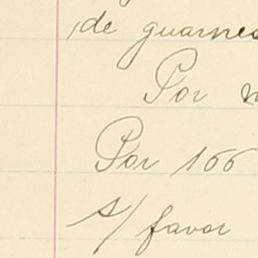 de guarnes
Por
Por 166
s/ favor